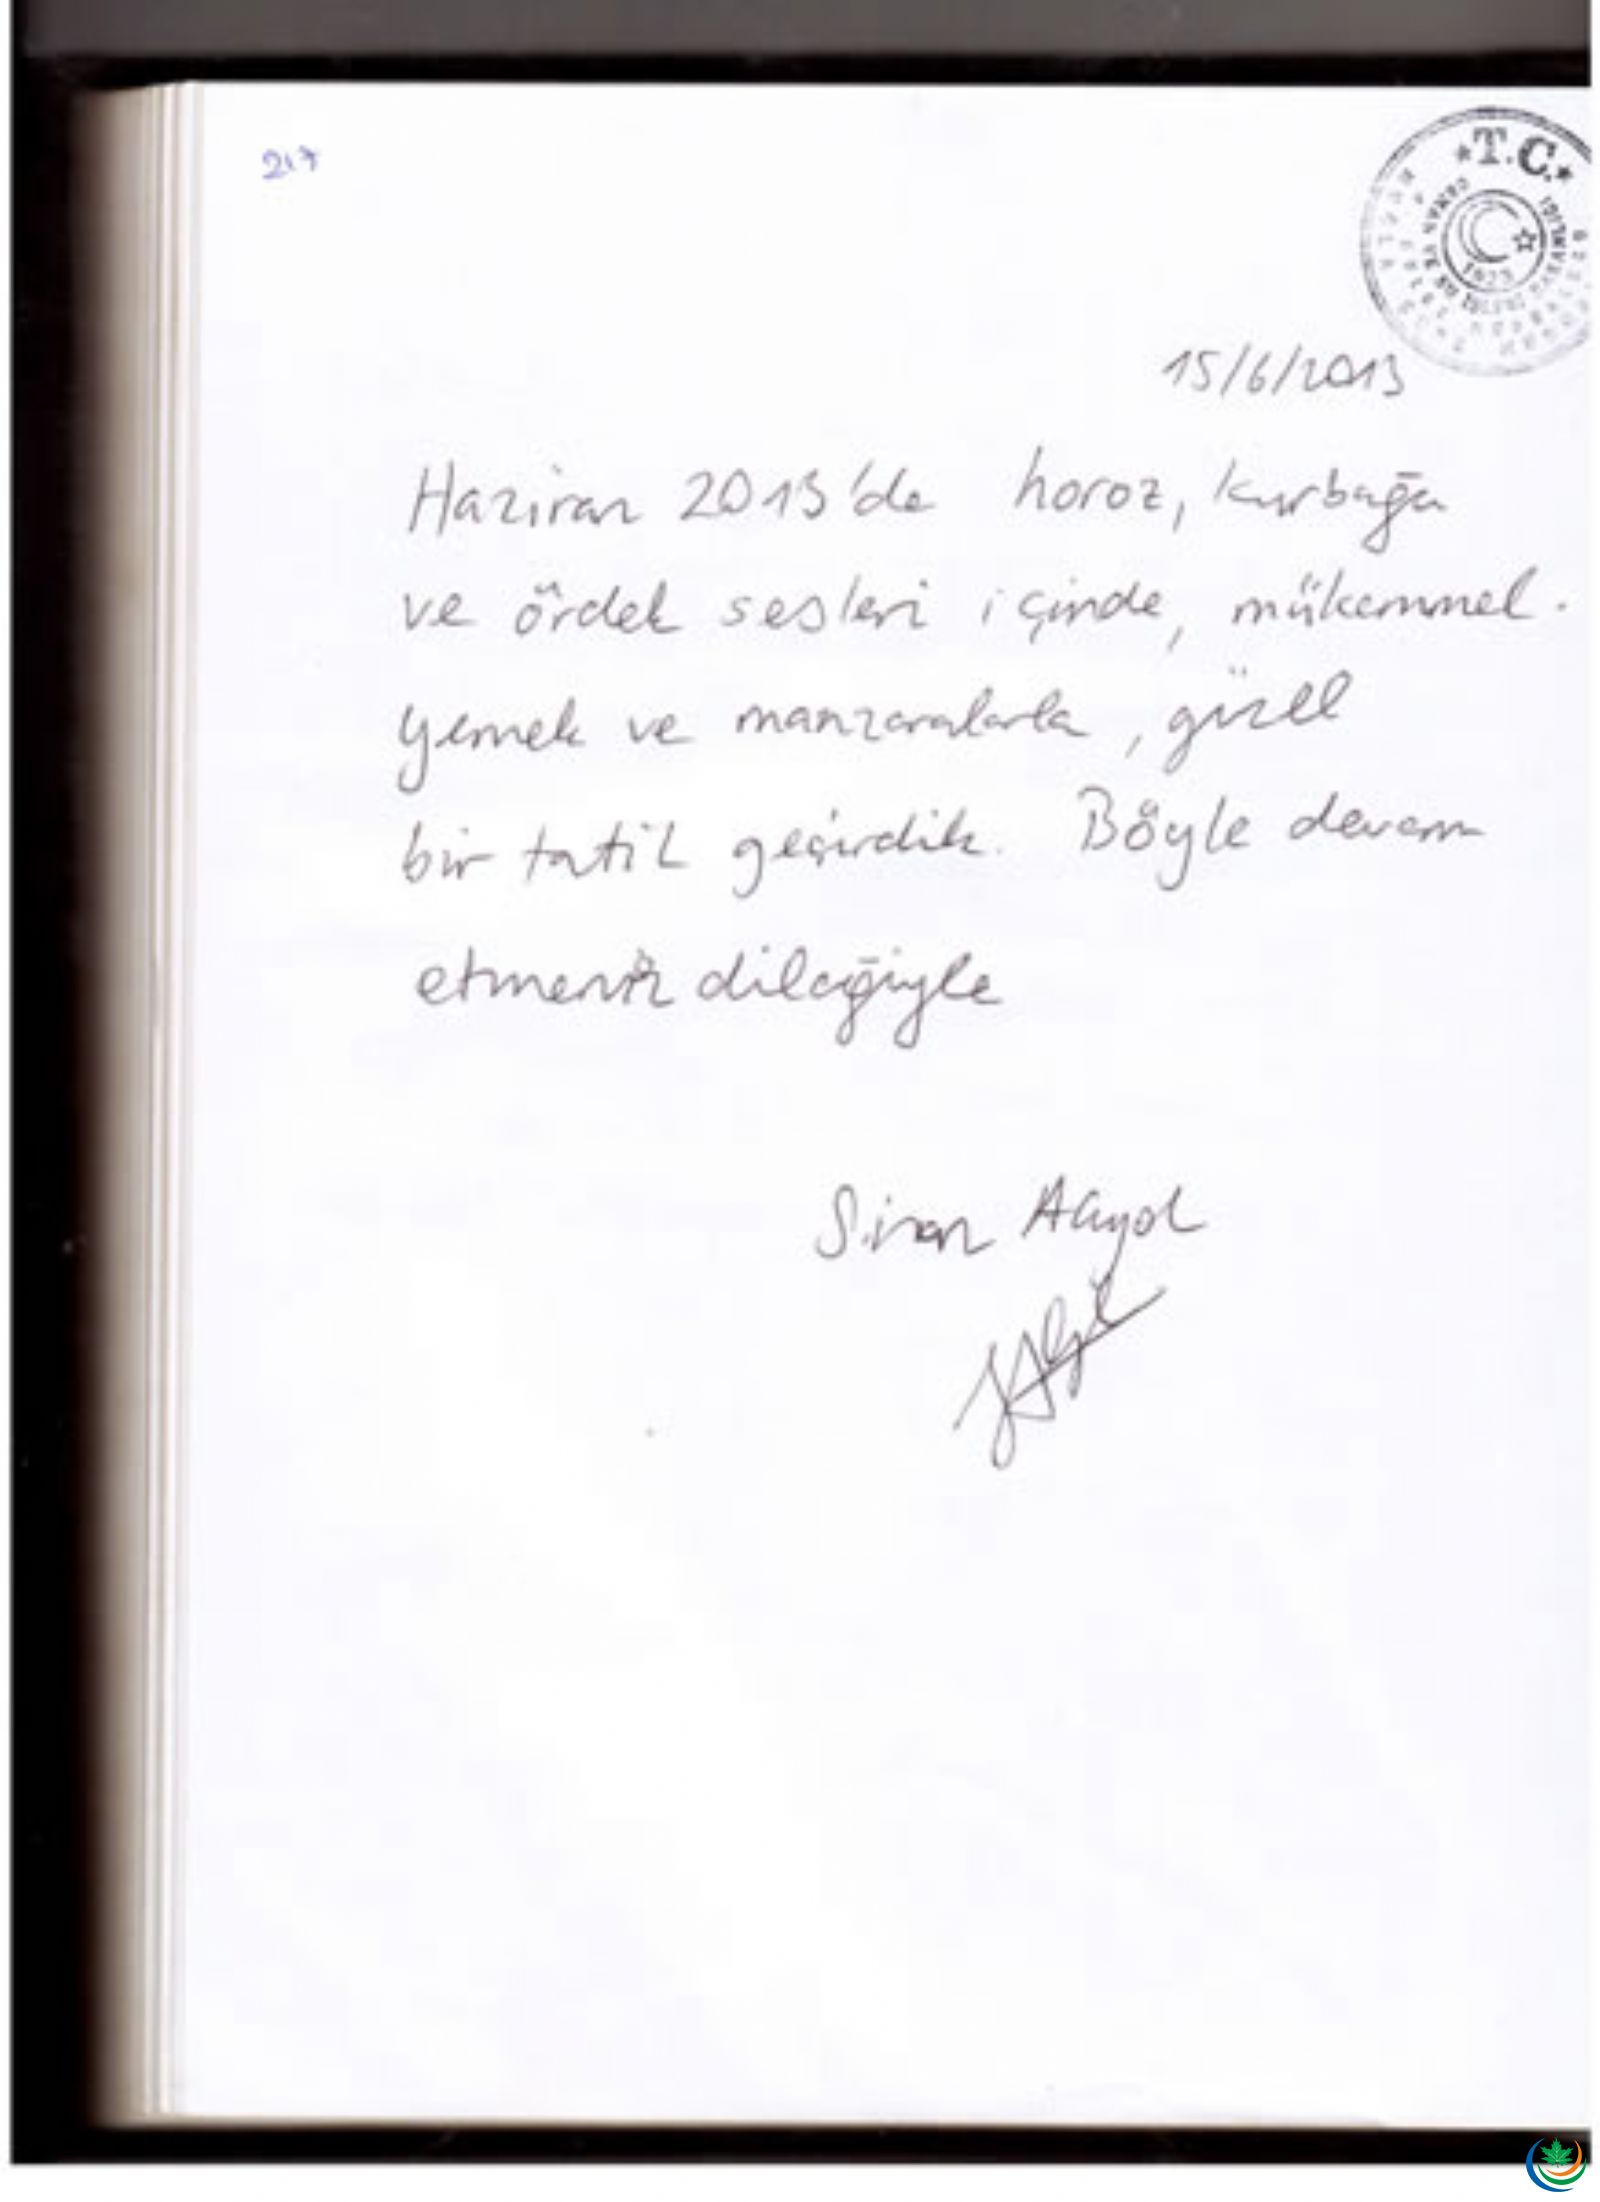 217
T.C.
1923
15/6/2013
Haziran 2013'de horoz, kurbağa
ve ördek sesleri içinde, mükemmel
yemek ve manzaralarla, güzel
bir tatil geçirdik. Böyle devam
etmeniz dileğiyle
Sinan Akyol